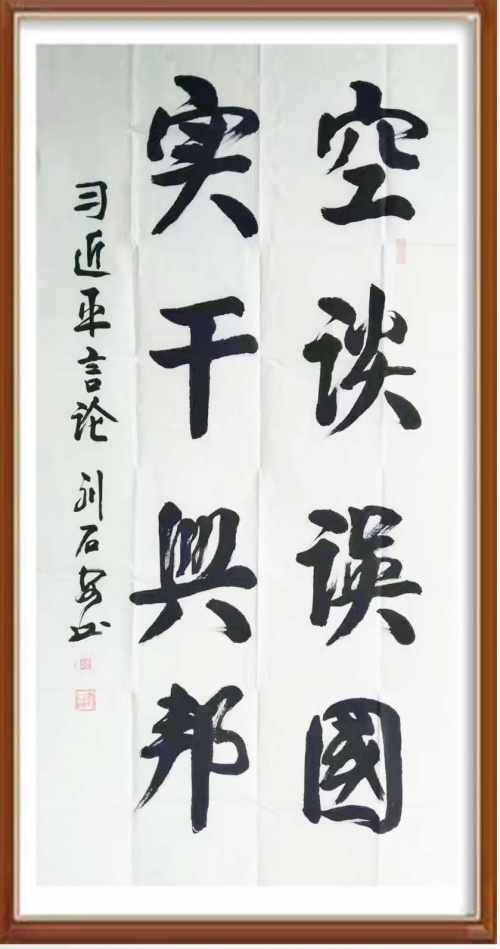 空谈误國
实干興邦
习近平言论 刘石安书